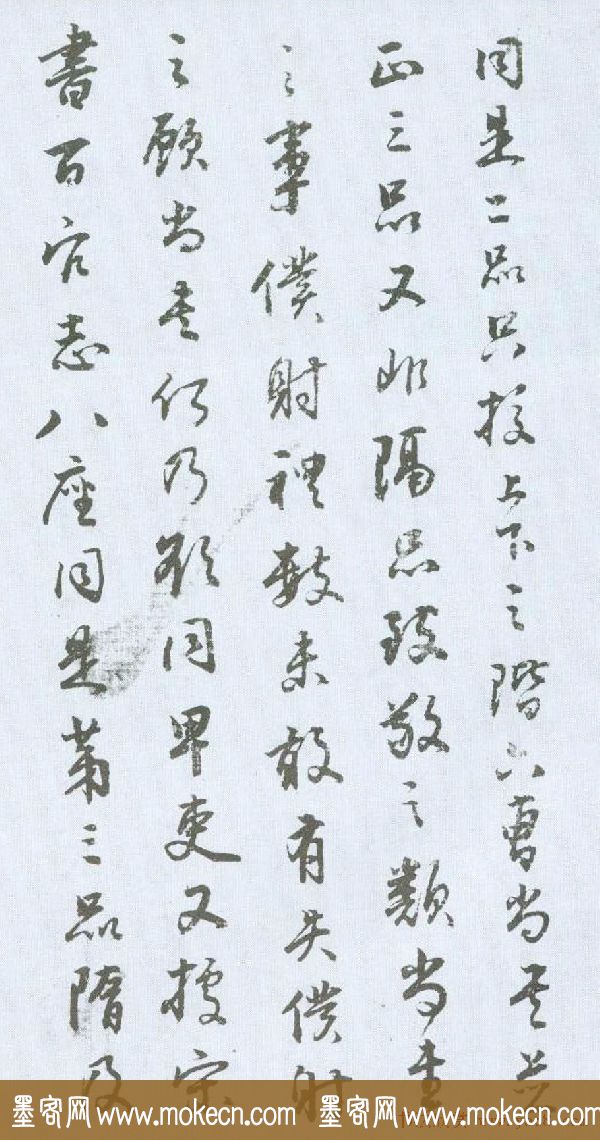 同是二品只校上下之階六曹尚書並
正三品又非隔品致敬之類尚書
之事僕射禮數未敢有失僕射
之顧尚書何乃欲同卑吏又據宋
書百官志八座同是第三品隋及
墨客网 www.mokecn.com 墨客网 www.mokecn.com